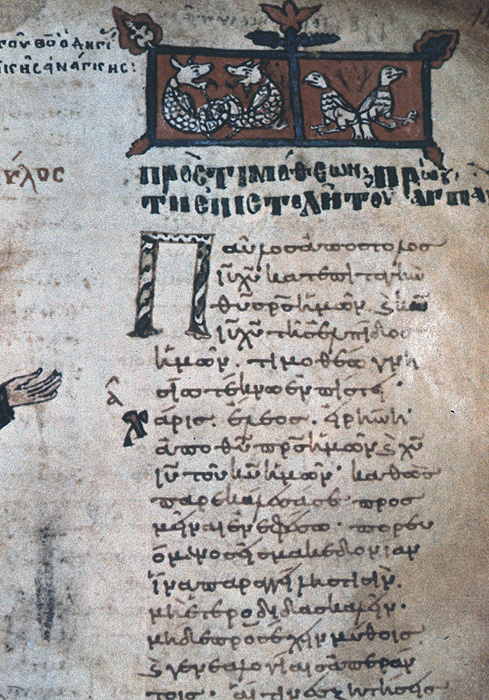 υλος
ΠΡΟΣ ΤΙΜΟΘΕΟΝ ΠΡΩΤ
ΕΠΙΣΤΟΛΗ ΤΟΥ ΑΓ ΠΑΥ
Παῦλος ἀπόστολος
ἰυ χυ κατ' ἐπιταγὴν
θυ σρς ἡμῶν. ϗ κυ
ἰυ χυ τῆς ἐλπίδος
ἡμῶν, τιμοθέω γνη
σίω τέκνω ἐν πίστει·
χάρις. ἔλεος. εἰρήνη
ἀπὸ θυ πρς ἡμῶν ϗ χυ
ἰυ τοῦ κυ ἡμῶν· καθὼς
παρεκάλεσά σε προς
μεῖναι ἐν ἐφέσω· πορευ
όμενος εἰς μακεδονίαν
ἵνα παραγγείλης τισὶν.
μὴ ἑτεροδιδασκαλεῖν·
μηδὲ προσέχειν μύθοις
ϗ γενεαλογίαις ἀπεράν
τοις. αἵτινες ζητήσεις